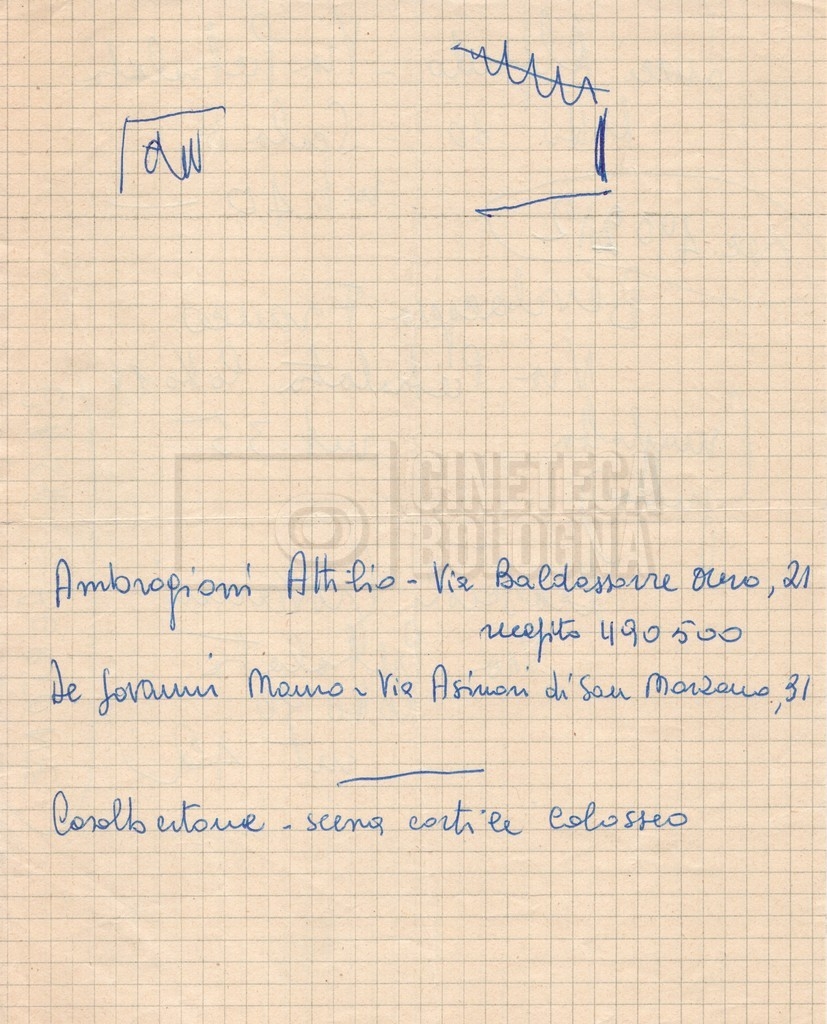 CINETECA
BOLOGNA
Ambrogioni Attilio - Via Baldassarre Orero, 21
recapito 490500
De Giovanni Mauro - Via Asinari di San Marzano, 31
Casalbertone - scena cortile Colosseo